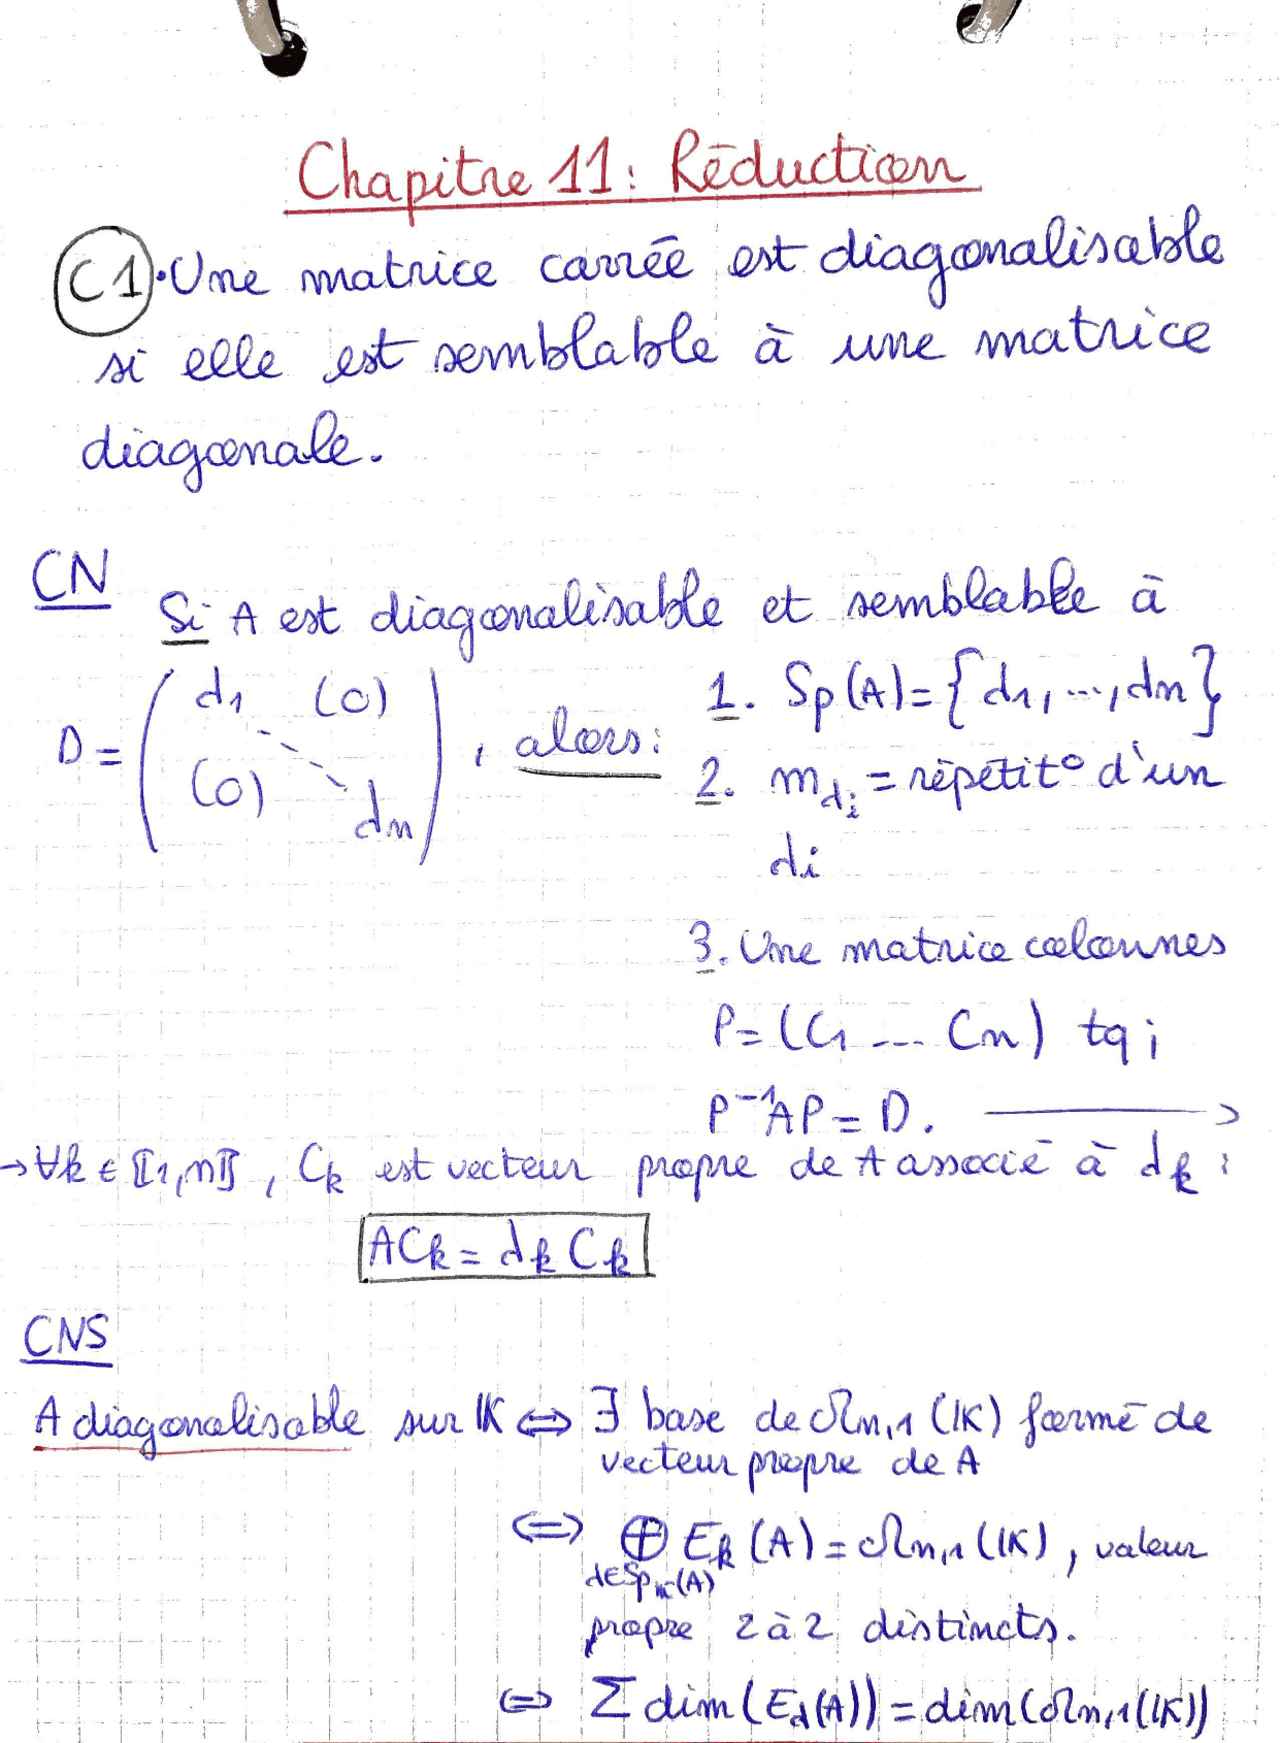 Chapitre 11: Réduction
C1 • Une matrice carrée est diagonalisable
si elle est semblable à une matrice
diagonale.
CN
Si A est diagonalisable et semblable à
D = ( d1 (0) (0) dn ) , alors:
1. Sp(A) = {d1, ..., dn}
2. m_di = répétit° d'un
di
3. Une matrice colonnes
P = (C1 --- Cn) tq :
P⁻¹AP = D. →
→ ∀k ∈ ⟦1,n⟧, Ck est vecteur propre de A associé à dk :
ACk = dk Ck
CNS
A diagonalisable sur 𝕂 ⇔ ∃ base de ℳn,1 (𝕂) formé de
vecteur propre de A
⇔ ⊕ Ek (A) = ℳn,1 (𝕂), valeur
d∈Sp𝕂(A)
propre 2 à 2 distincts.
⇔ Σ dim (Ed(A)) = dim(ℳn,1(𝕂))